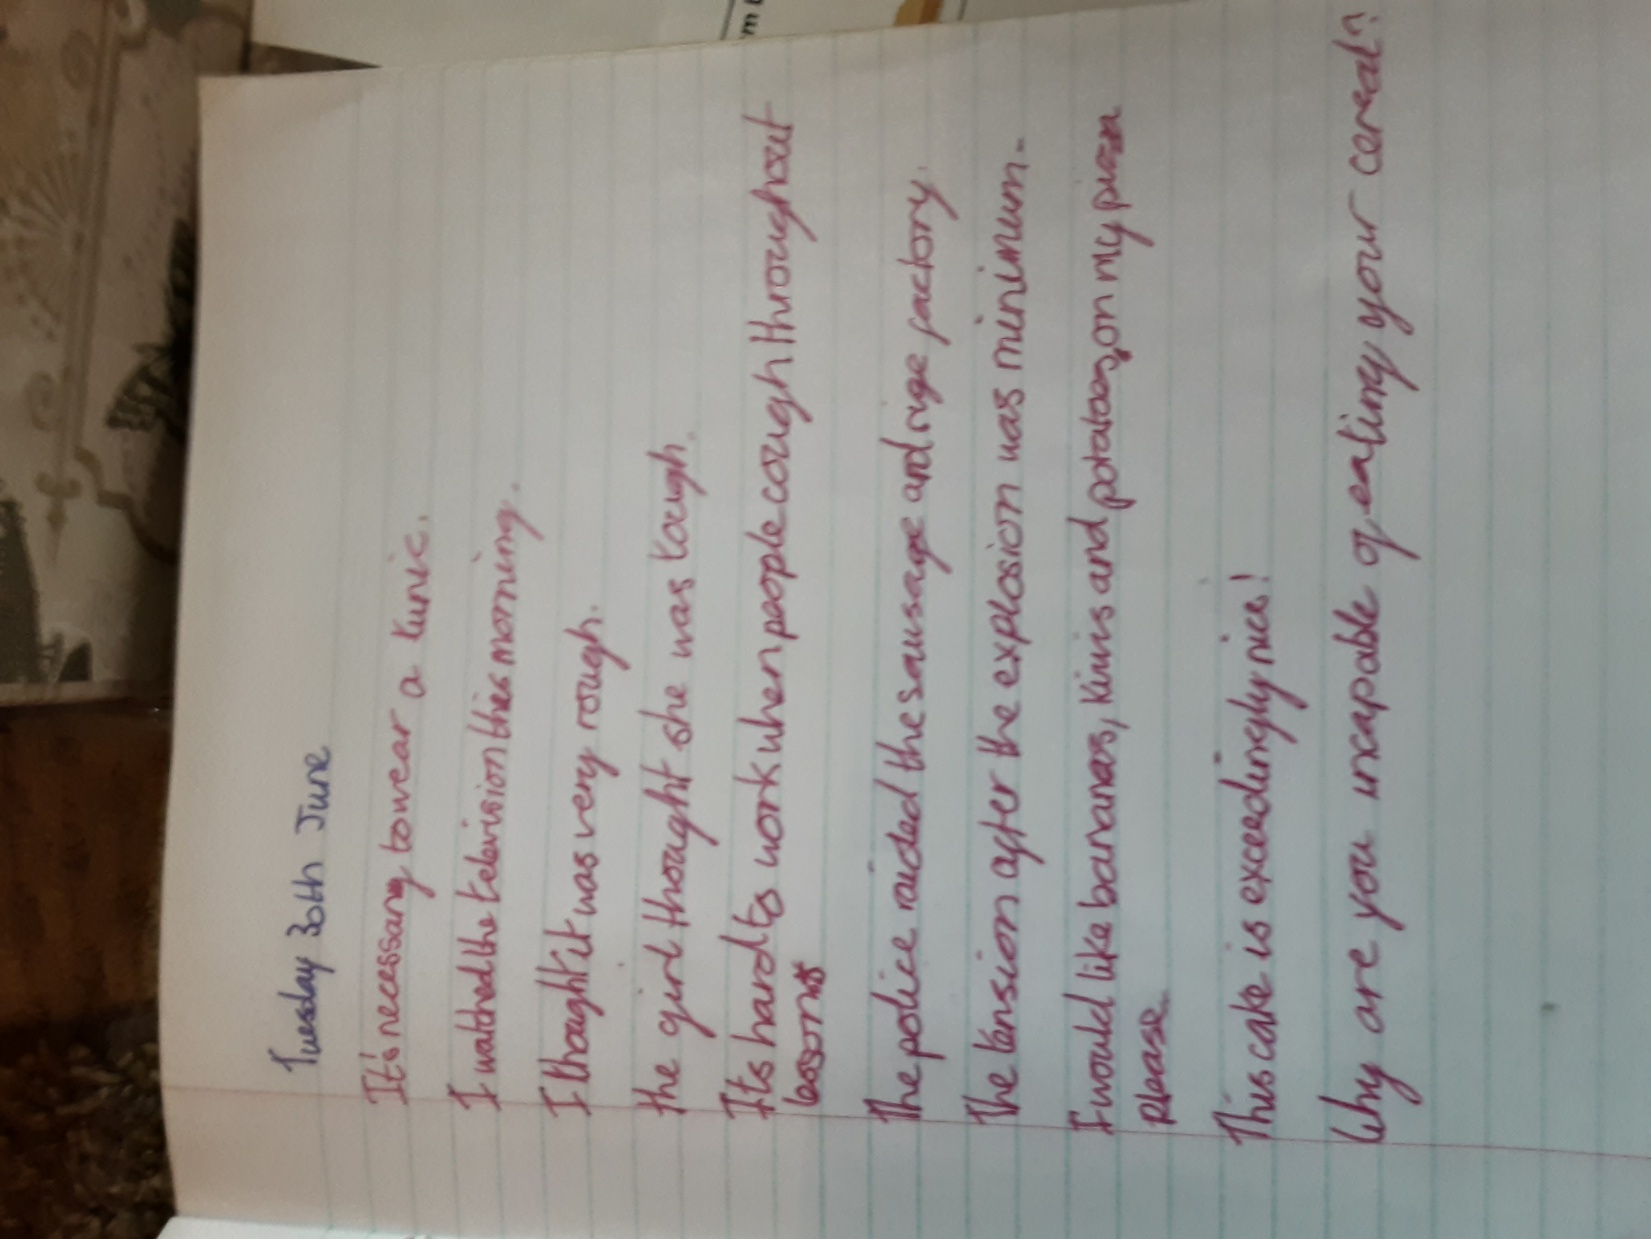 Tuesday 30th June
It's necessary to wear a tunic.
I watched the television this morning.
I thought it was very rough.
the girl thought she was tough.
Its hard to work when people cough throughout
lessons
The police raided the sausage and rige factory.
The tension after the explosion was minimum.
I would like bananas, kiwis and potatoes on my pizza
please.
This cake is exceedingly nice!
Why are you incapable of eating your cereal?